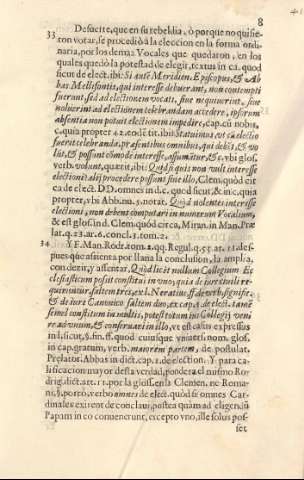 8
33 De suerte, que en su rebeldia, ò porque no quisieron votar, se procediò à la eleccion en la forma ordinaria, por los demas Vocales que quedaron, en los
quales quedò la potestad de elegir, textus in ca. quod
sicut de elect. ibi: Si autē Meridien. Episcopus, & Abbas Mellesontis, qui interesse debuerant, non contempti
fuerant, sed ad electionem vocati, sine nequiuerint, siue
noluerint ad electionem celebrandam accedere, ipsorum
absentia non potuit electionem impedire, cap. cū nobis,
c. quia propter 42. eod. tit. ibi: Statuimus vt cū electio
fuerit celebranda, præsentibus omnibus, qui debēt, & volūt, & possunt cōmodè interesse, assumātur, & c. vbi glos.
verb. volunt, quærit, ibi: Quid si quis non vult interesse
electioni: alij procedere possunt sine illo, Clem. quòd circa de elect. DD. omnes in d. c. quod sicut, & in c. quia
propter, vbi Abb. nu. 5. notat. Quòd nolentes interesse
electioni, non debent computari in numerum Vocalium,
& est glos. ind. Clem. quòd circa, Miran. in Man. Prælat. q. 23. ar. 6. concl. 3. tom. 2.
34 Y F. Man. Rodr. tom. 2. qq. Regul. q. 55. ar. 11. despues que assienta por llana la conclusion, la amplia,
con dezir, y assentar, Quòd licet nullum Collegium Ecclesiasticum possit consistere in vno, quia de iure ciuili requiruntur saltem tres, ex l. Neratius, ff. de verb. signific.
& de iure Canonico saltem duo, ex cap. 1. de elect. tamē
semel constitum in multis, potest totum ius Collegij venire ad vnum, & conseruari in illo, vt est casus expressus
in l. sicut, §. fin. ff. quod cuiusque vniuers. nom. glos.
in cap. gratum, verb. maiorem partem, de postulat.
Prelator. Abbas in dict. cap. 1. de election. Y para calificacion mayor desta verdad, pondera el mismo Rodrig. dict. art. 11. por la gloss. en la Clemen. ne Romani, §. porrò, verbo omnes de elect. quòd si omnes Cardinales exirent de conclaui, postea quàm ad eligendū
Papam in eo conuenerunt, excepto vno, ille solus pos-
set